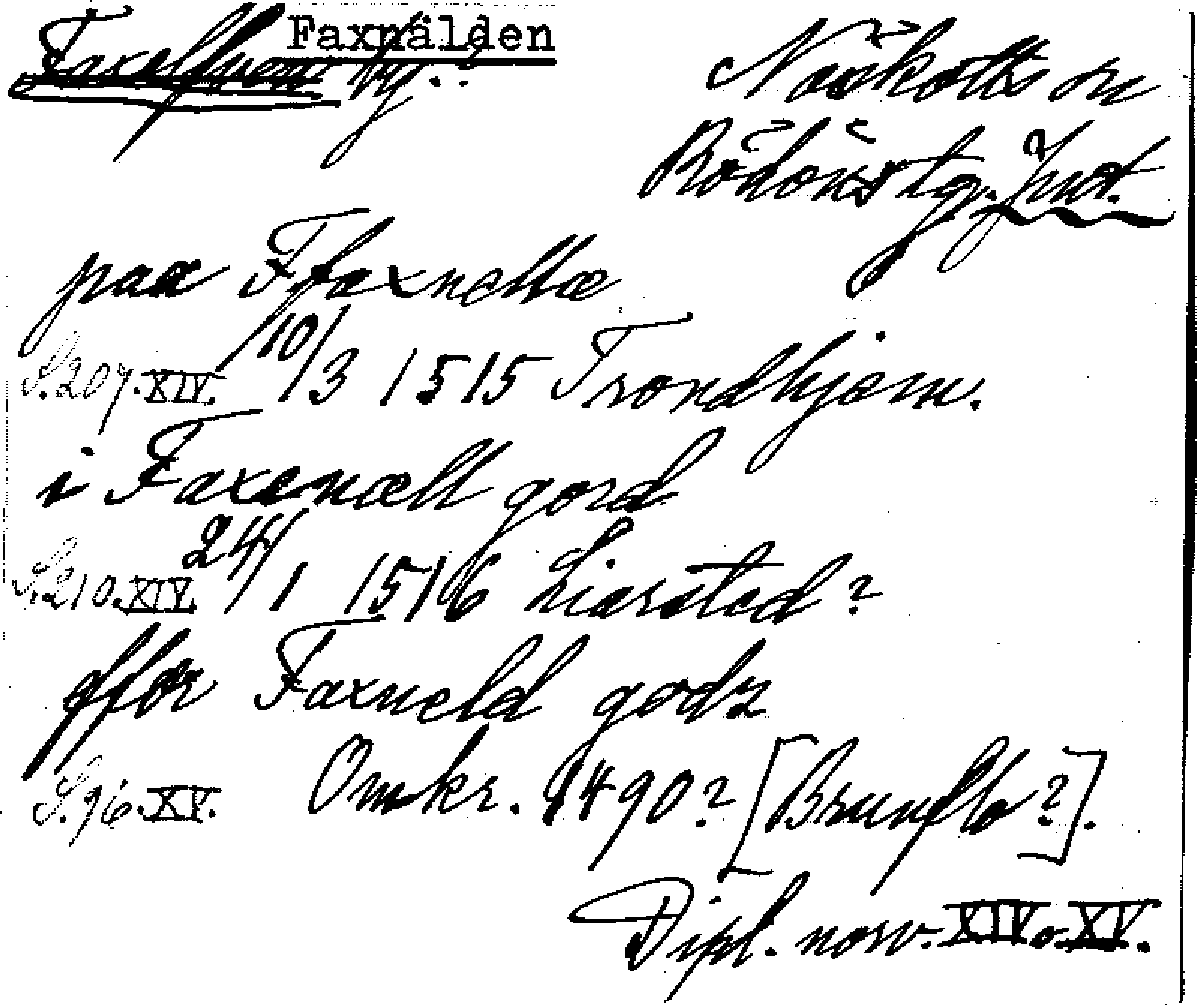 Faxnälden
by.?
Näskotts sn
Rödöns tg. Jmt.
paa Ffaxnellæ
S. 207. XIV. 10/3 1515 Trondhjem.
i Faxenæll gord
S. 210. XIV. 24/1 1516 Liærsted?
ffor Faxneld godz
S. 96. XV. Omkr. 1490? [Brunflo?].
Dipl. norv. XIV o. XV.